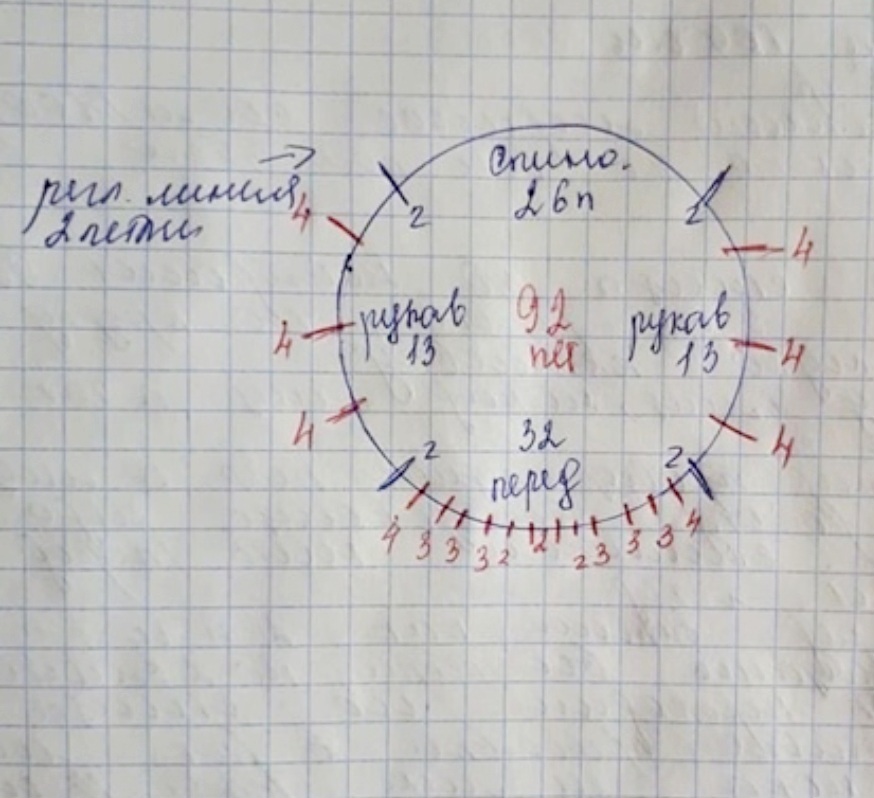 спинка.
26п
регл. линия
2 петли
2
2
4
4
рукав
13
92
пет
рукав
13
4
4
4
4
32
перед
2
2
4 3 3 3 2 2 2 3 3 3 4